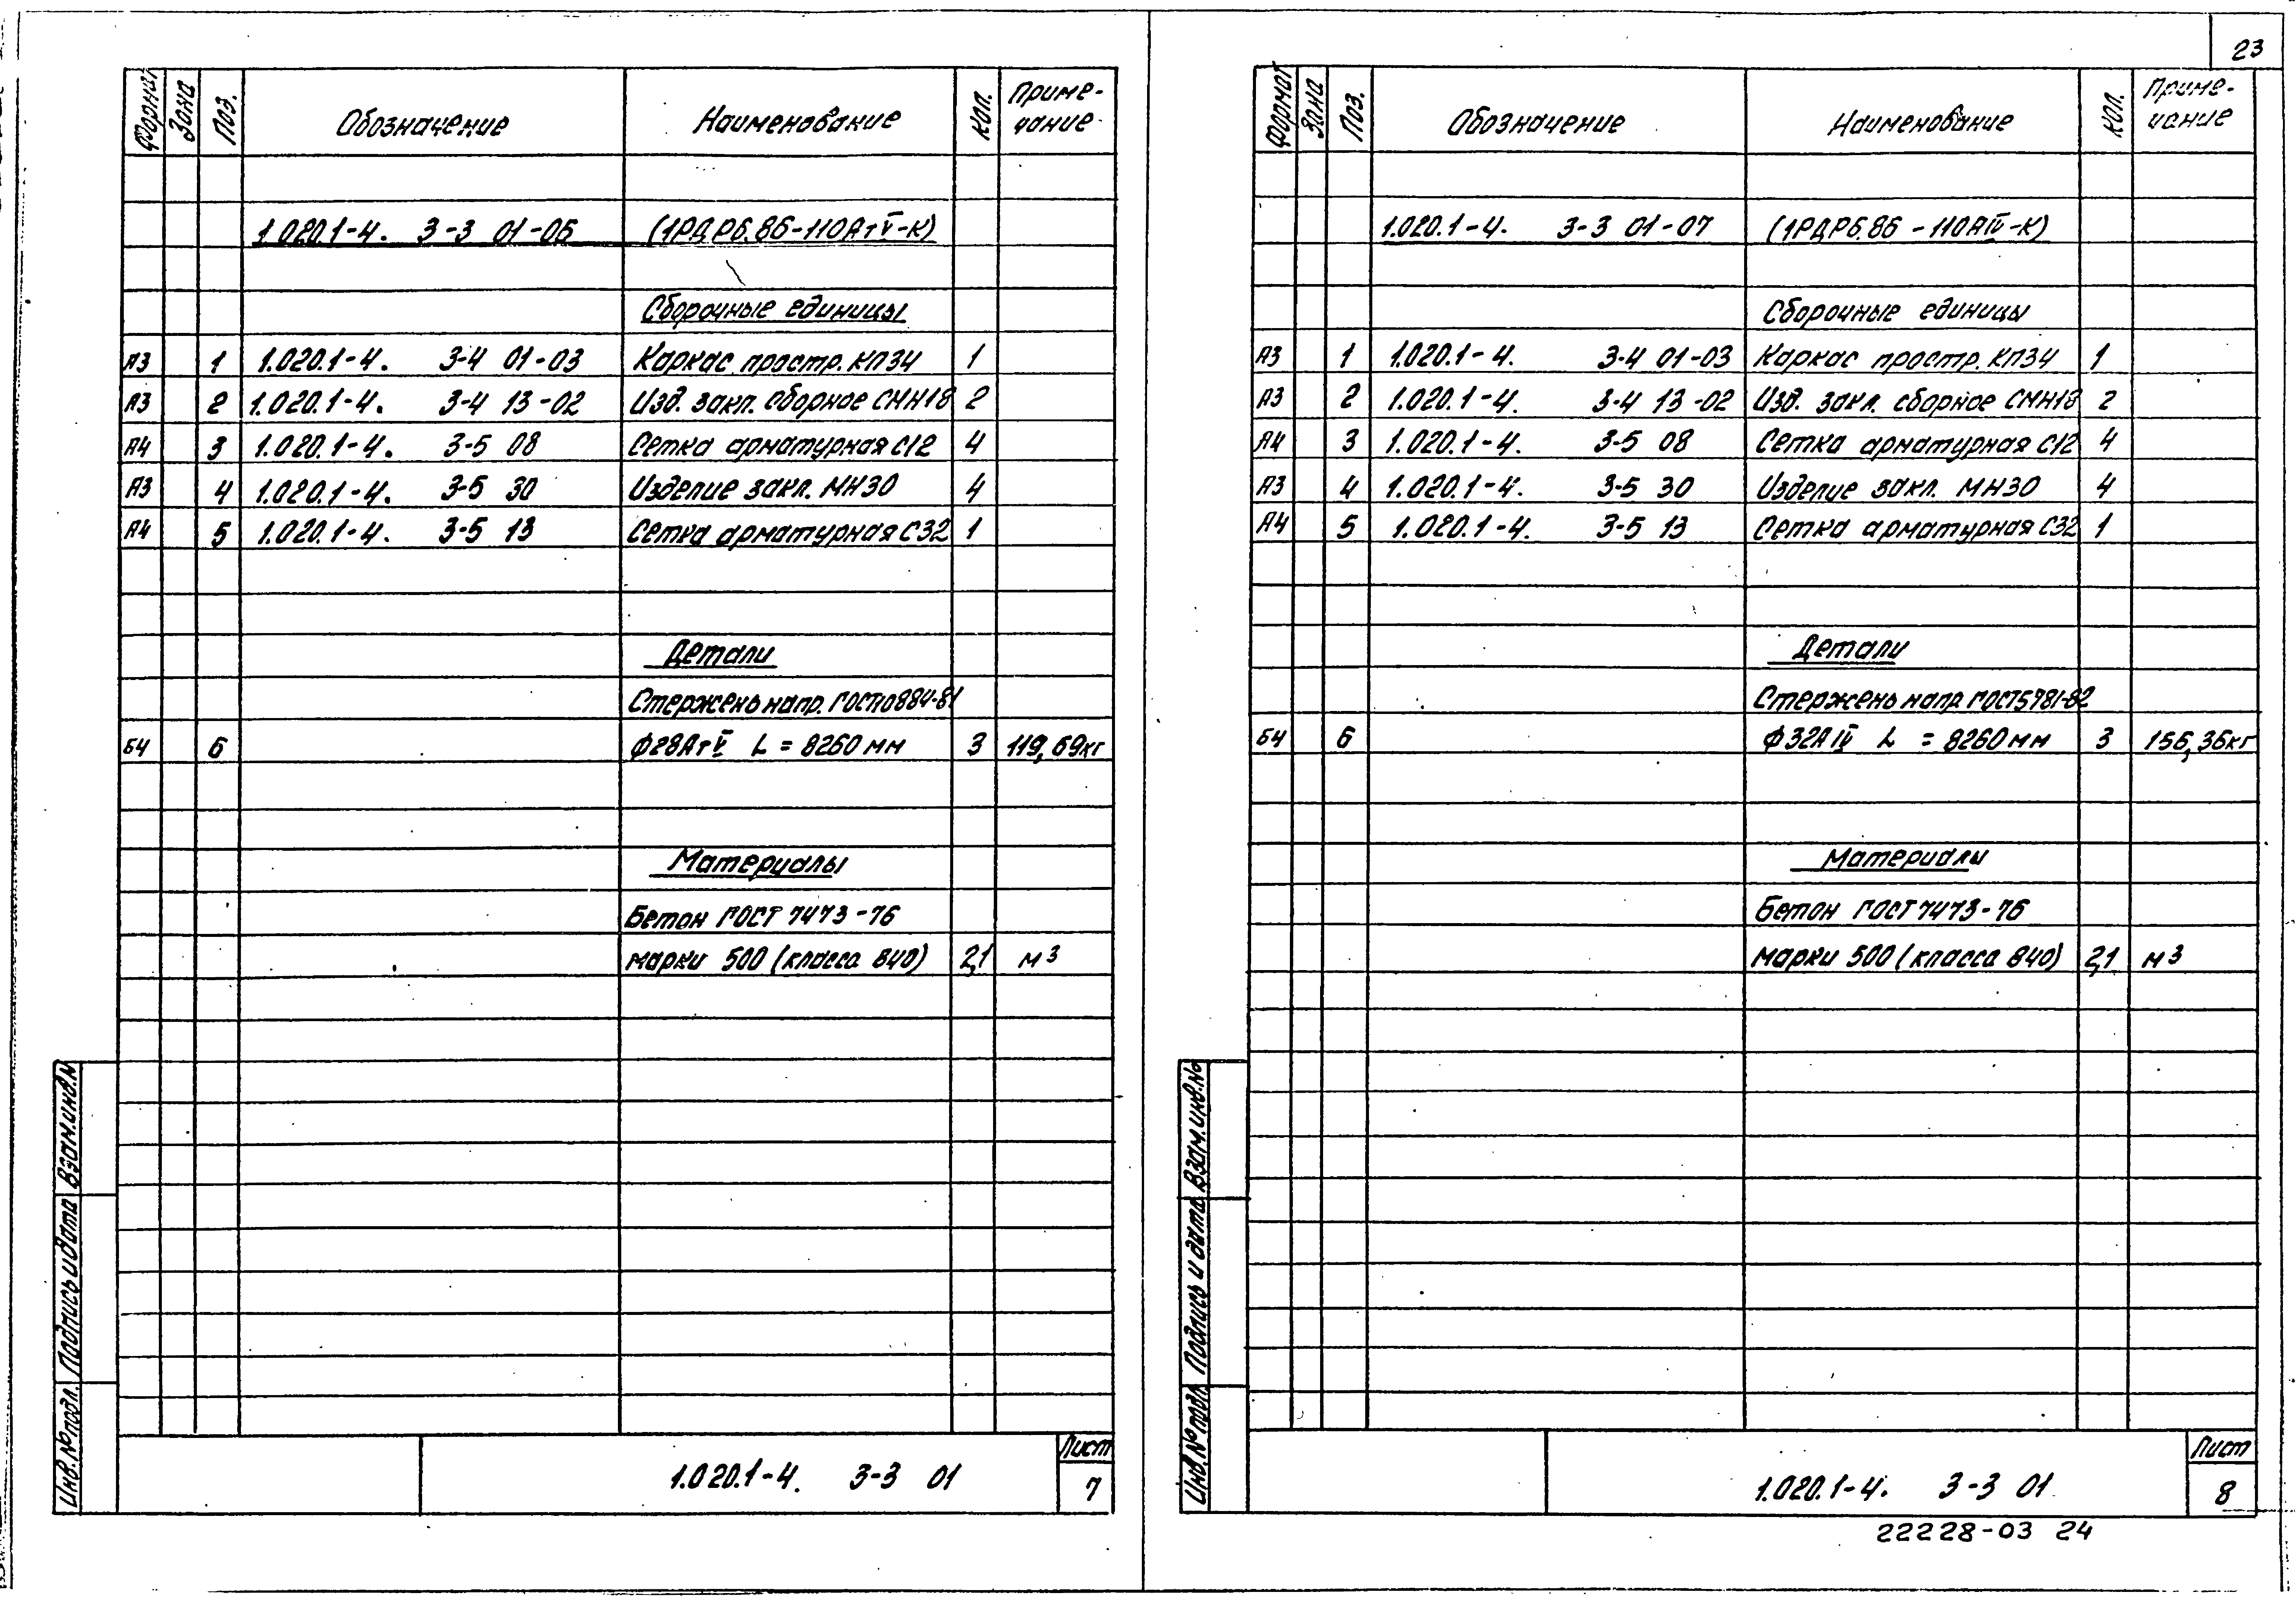 23
Формат Зона Поз. Обозначение Наименование Кол. Приме-
чание
1.020.1-4. 3-3 01-06 (1РДР6.86-110АтV-К)
Сборочные единицы
А3 1 1.020.1-4. 3-4 01-03 Каркас простр. КП34 1
А3 2 1.020.1-4. 3-4 13-02 Изд. закл. сборное СМН18 2
А4 3 1.020.1-4. 3-5 08 Сетка арматурная С12 4
А3 4 1.020.1-4. 3-5 30 Изделие закл. МН30 4
А4 5 1.020.1-4. 3-5 13 Сетка арматурная С32 1
Детали
Стержень напр. ГОСТ10884-81
Б4 6 Ф28АтV L = 8260 мм 3 119,69кг
Материалы
Бетон ГОСТ 7473-76
марки 500 (класса В40) 2,1 м3
Взам.инв.№
Подпись и дата
Инв.№ подл.
1.020.1-4. 3-3 01
Лист
7
Формат Зона Поз. Обозначение Наименование Кол. Приме-
чание
1.020.1-4. 3-3 01-07 (1РДР6.86-110АIV-К)
Сборочные единицы
А3 1 1.020.1-4. 3-4 01-03 Каркас простр. КП34 1
А3 2 1.020.1-4. 3-4 13-02 Изд. закл. сборное СМН18 2
А4 3 1.020.1-4. 3-5 08 Сетка арматурная С12 4
А3 4 1.020.1-4. 3-5 30 Изделие закл. МН30 4
А4 5 1.020.1-4. 3-5 13 Сетка арматурная С32 1
Детали
Стержень напр. ГОСТ5781-82
Б4 6 Ф32АIV L = 8260 мм 3 156,36кг
Материалы
Бетон ГОСТ 7473-76
марки 500 (класса В40) 2,1 м3
Взам.инв.№
Подпись и дата
Инв.№ подл.
1.020.1-4. 3-3 01
Лист
8
22228-03 24